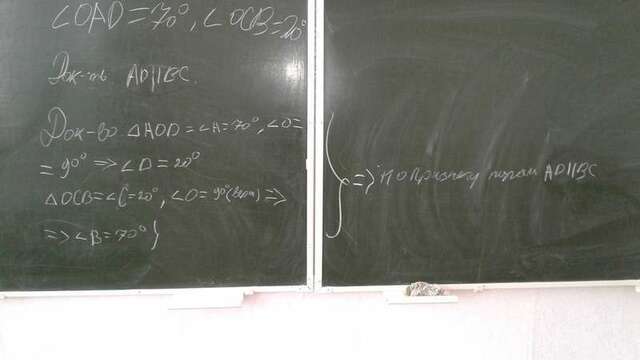 ∠OAD=70°, ∠OCB=20°
Док-ть AD||BC.
Док-во △AOD=∠A=70°, ∠O=
=90° => ∠D=20°
△OCB=∠C=20°, ∠O=90° (верт) =>
=> ∠B=70° }
=> по признаку парал AD||BC